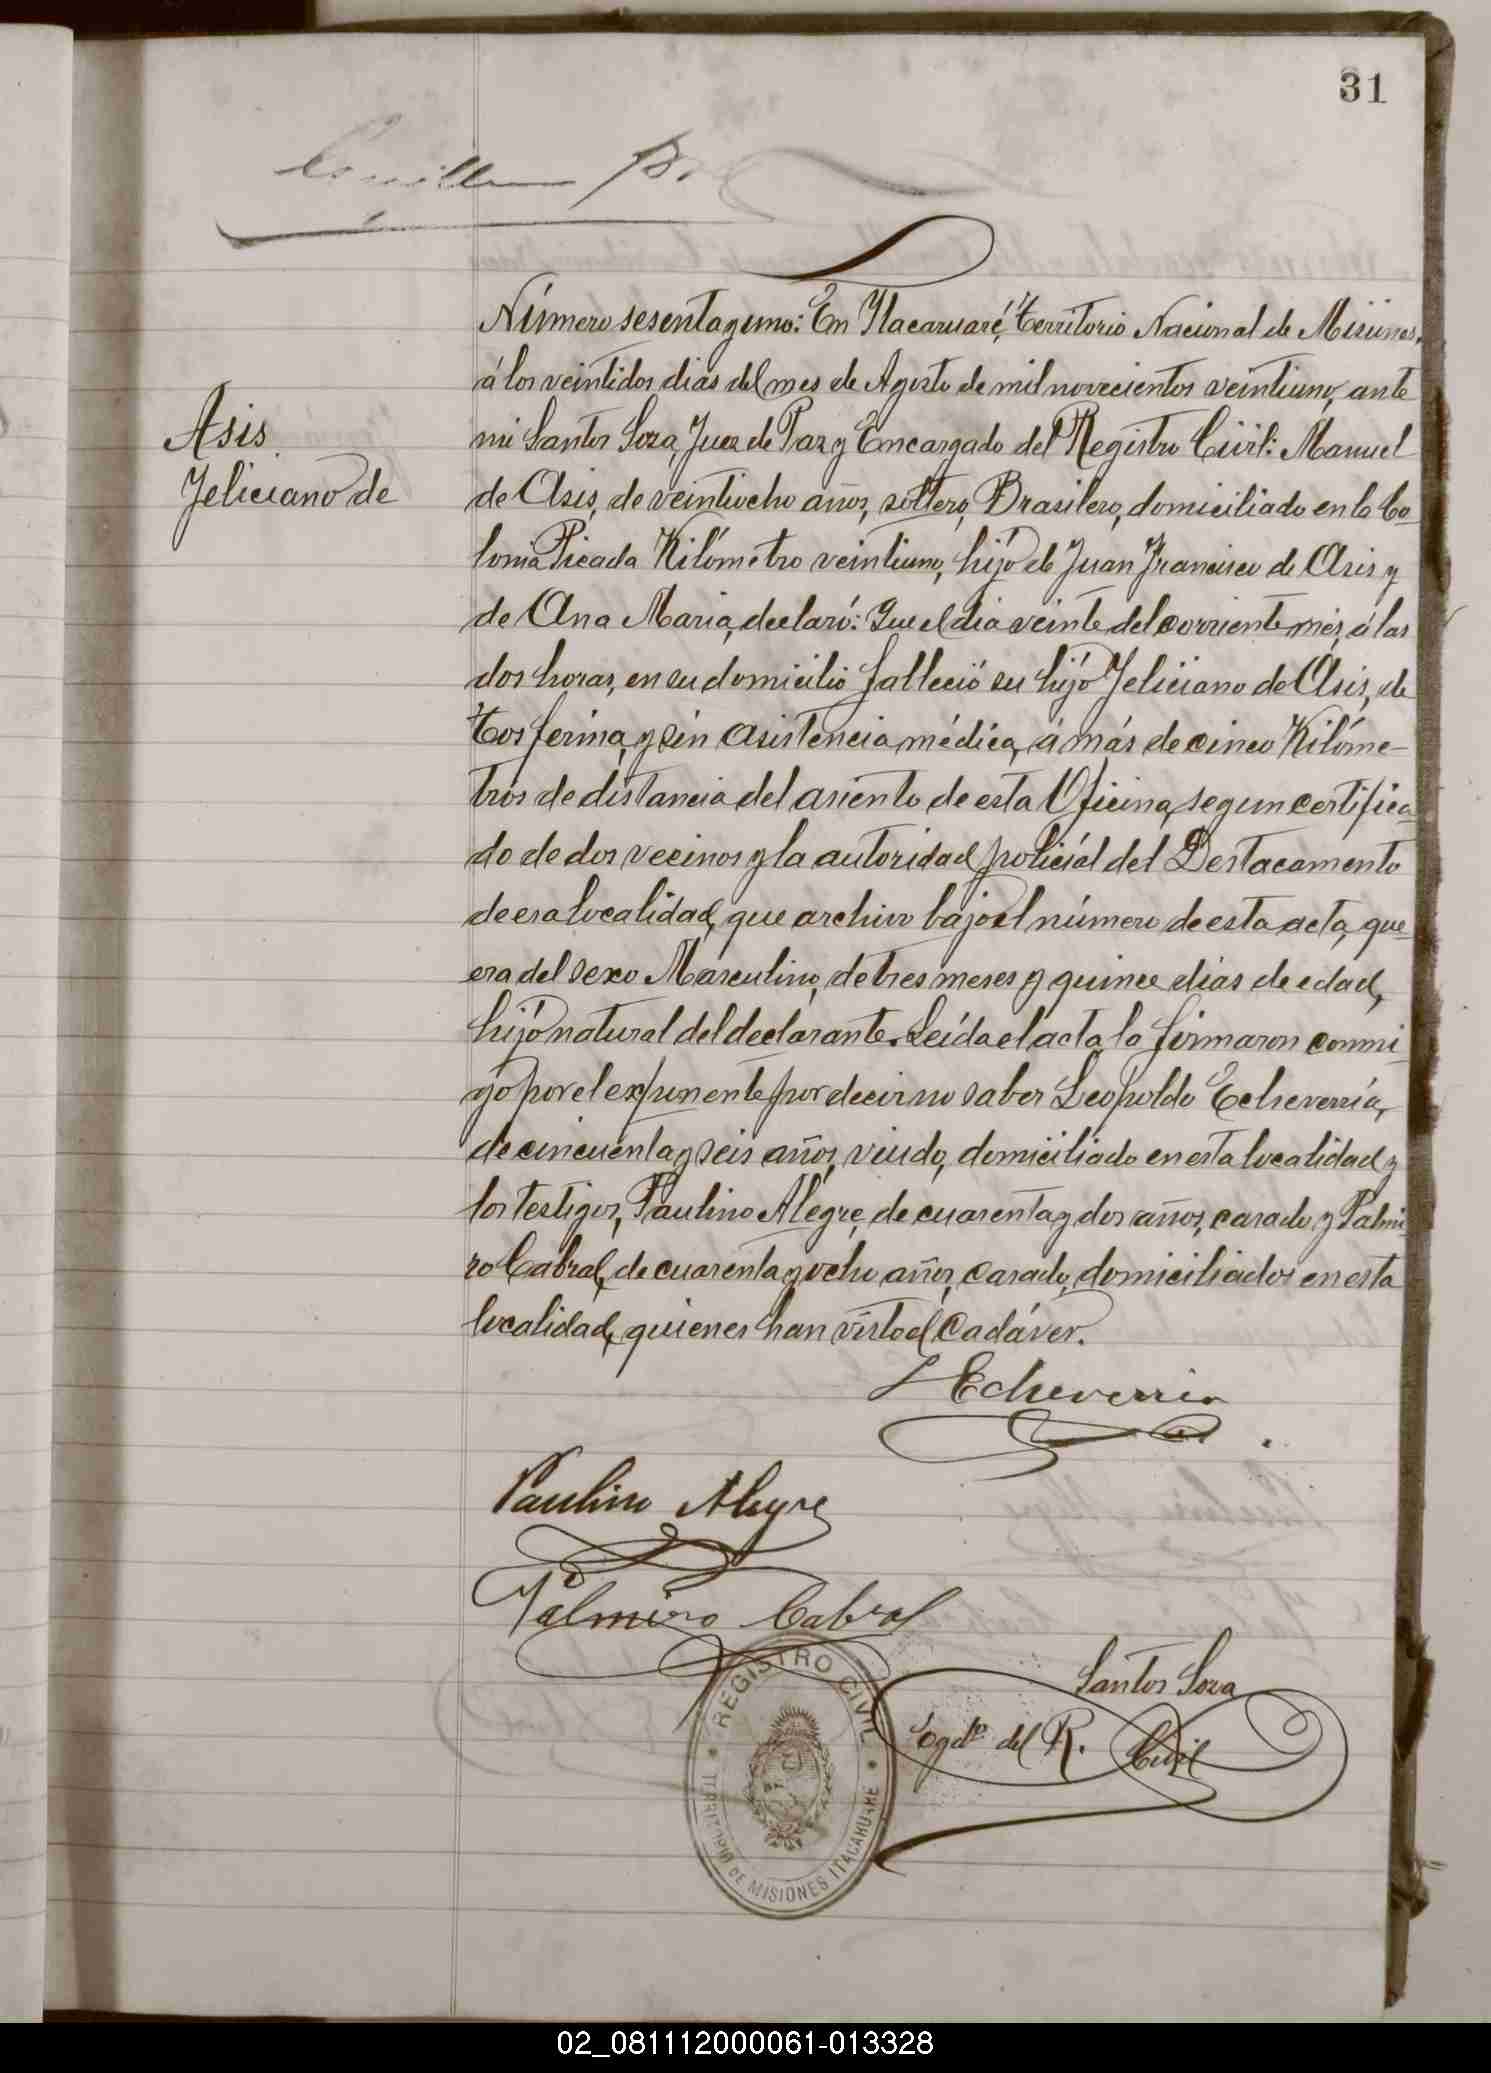 31
Número sesentayuno: En Itacaruaré, Territorio Nacional de Misiones,
á los veintidos dias del mes de Agosto de mil novecientos veintiuno, ante
Asis
mi Santos Soza, Juez de Paz y Encargado del Registro Civil: Manuel
Feliciano de
de Asis, de veintiocho años, soltero, Brasilero, domiciliado en la Co-
lonia Picada Kilómetro veintiuno, hijo de Juan Francisco de Asis y
de Ana Maria, declaró: Que el dia veinte del corriente mes, á las
dos horas, en su domicilio falleció su hijo Feliciano de Asis, de
Tos ferina, y sin asistencia médica, á más de cinco Kilóme-
tros de distancia del asiento de esta Oficina, segun certifica-
do de dos vecinos y la autoridad policial del Destacamento
de esa localidad, que archivo bajo el número de esta acta, que
era del sexo Masculino, de tres meses y quince dias de edad,
hijo natural del declarante. Leída el acta, la firmaron conmi-
go por el exponente por decir no saber Leopoldo Echeverría,
de cincuenta y seis años, viudo, domiciliado en esta localidad y
los testigos, Paulino Alegre, de cuarenta y dos años, casado y Palmi-
ro Cabral, de cuarenta y ocho años, casado, domiciliados en esta
localidad, quienes han visto el cadáver.
L Echeverria
Paulino Alegre
Palmiro Cabral
Santos Soza
Egdo del R. Civil
REGISTRO CIVIL
TERRITORIO DE MISIONES ITACARUARE
02_081112000061-013328